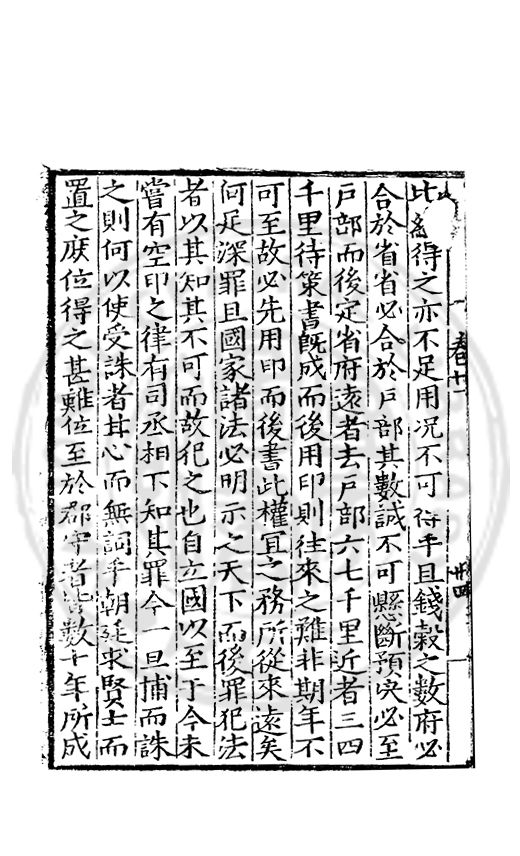 此紙得之亦不足用况不可得乎且錢穀之數府必
合於省省必合於戸部其數誠不可懸斷預决必至
戸部而後定省府遠者去戸部六七千里近者三四
千里待策書既成而後用印則往來之難非期年不
可至故必先用印而後書此權冝之務所從來遠矣
何足深罪且國家諸法必明示之天下而後罪犯法
者以其知其不可而故犯之也自立國以至于今未
嘗有空印之律有司丞相不知其罪今一旦捕而誅
之則何以使受誅者甘心而無詞乎朝廷求賢士而
置之庶位得之甚難位至於郡守者皆數十年所成
卷十一
廿四